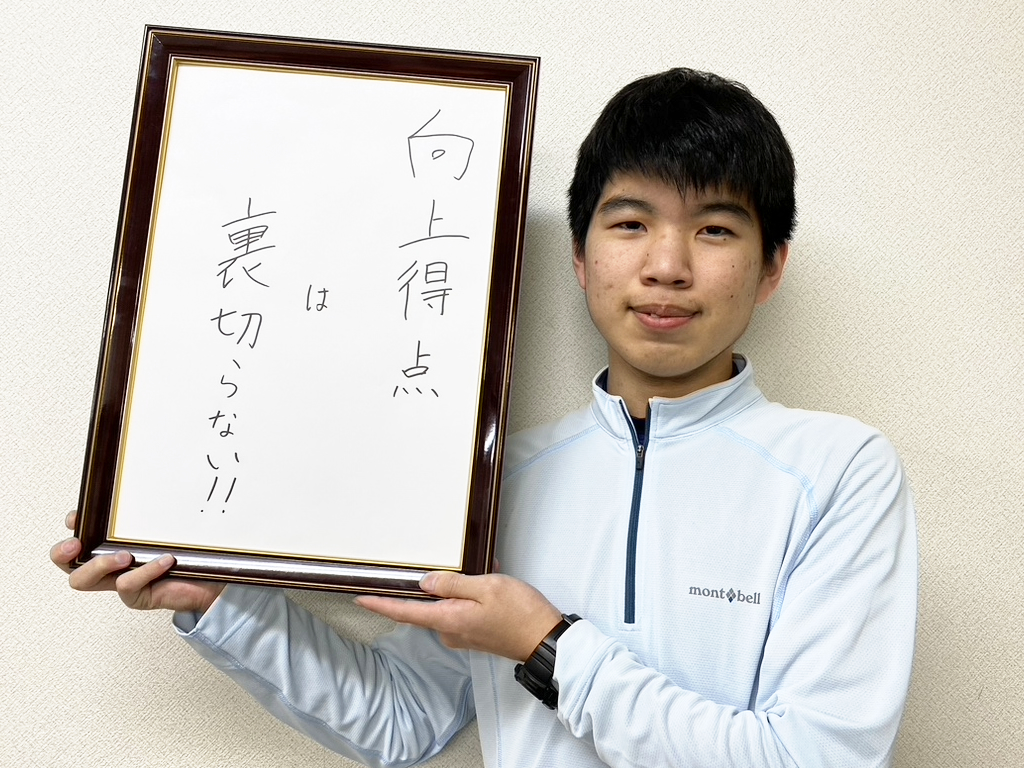 向上得点
は
裏切らない!!
mont bell